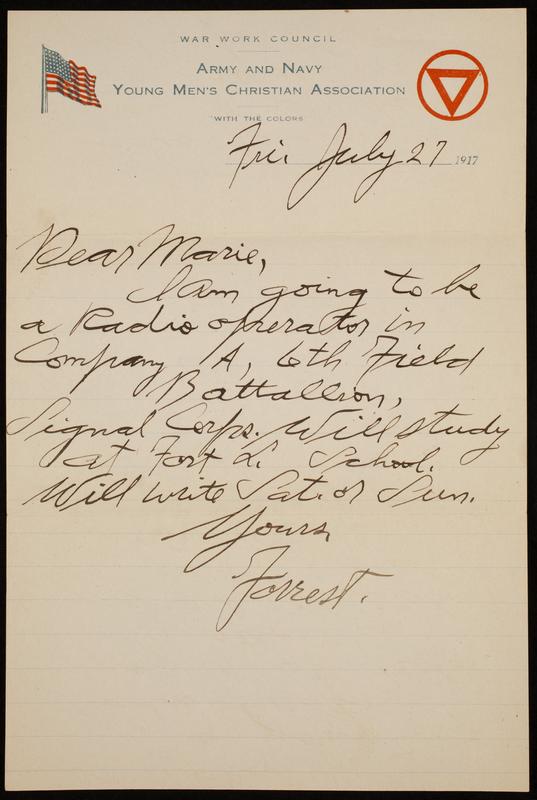 WAR WORK COUNCIL
ARMY AND NAVY
YOUNG MEN'S CHRISTIAN ASSOCIATION
"WITH THE COLORS"
Fri. July 27 1917
Dear Marie,
I am going to be
a Radio operator in
Company A, 6th Field
Battallion,
Signal Corps. Will study
at Fort L. School.
Will write Sat. or Sun.
Yours,
Forrest.